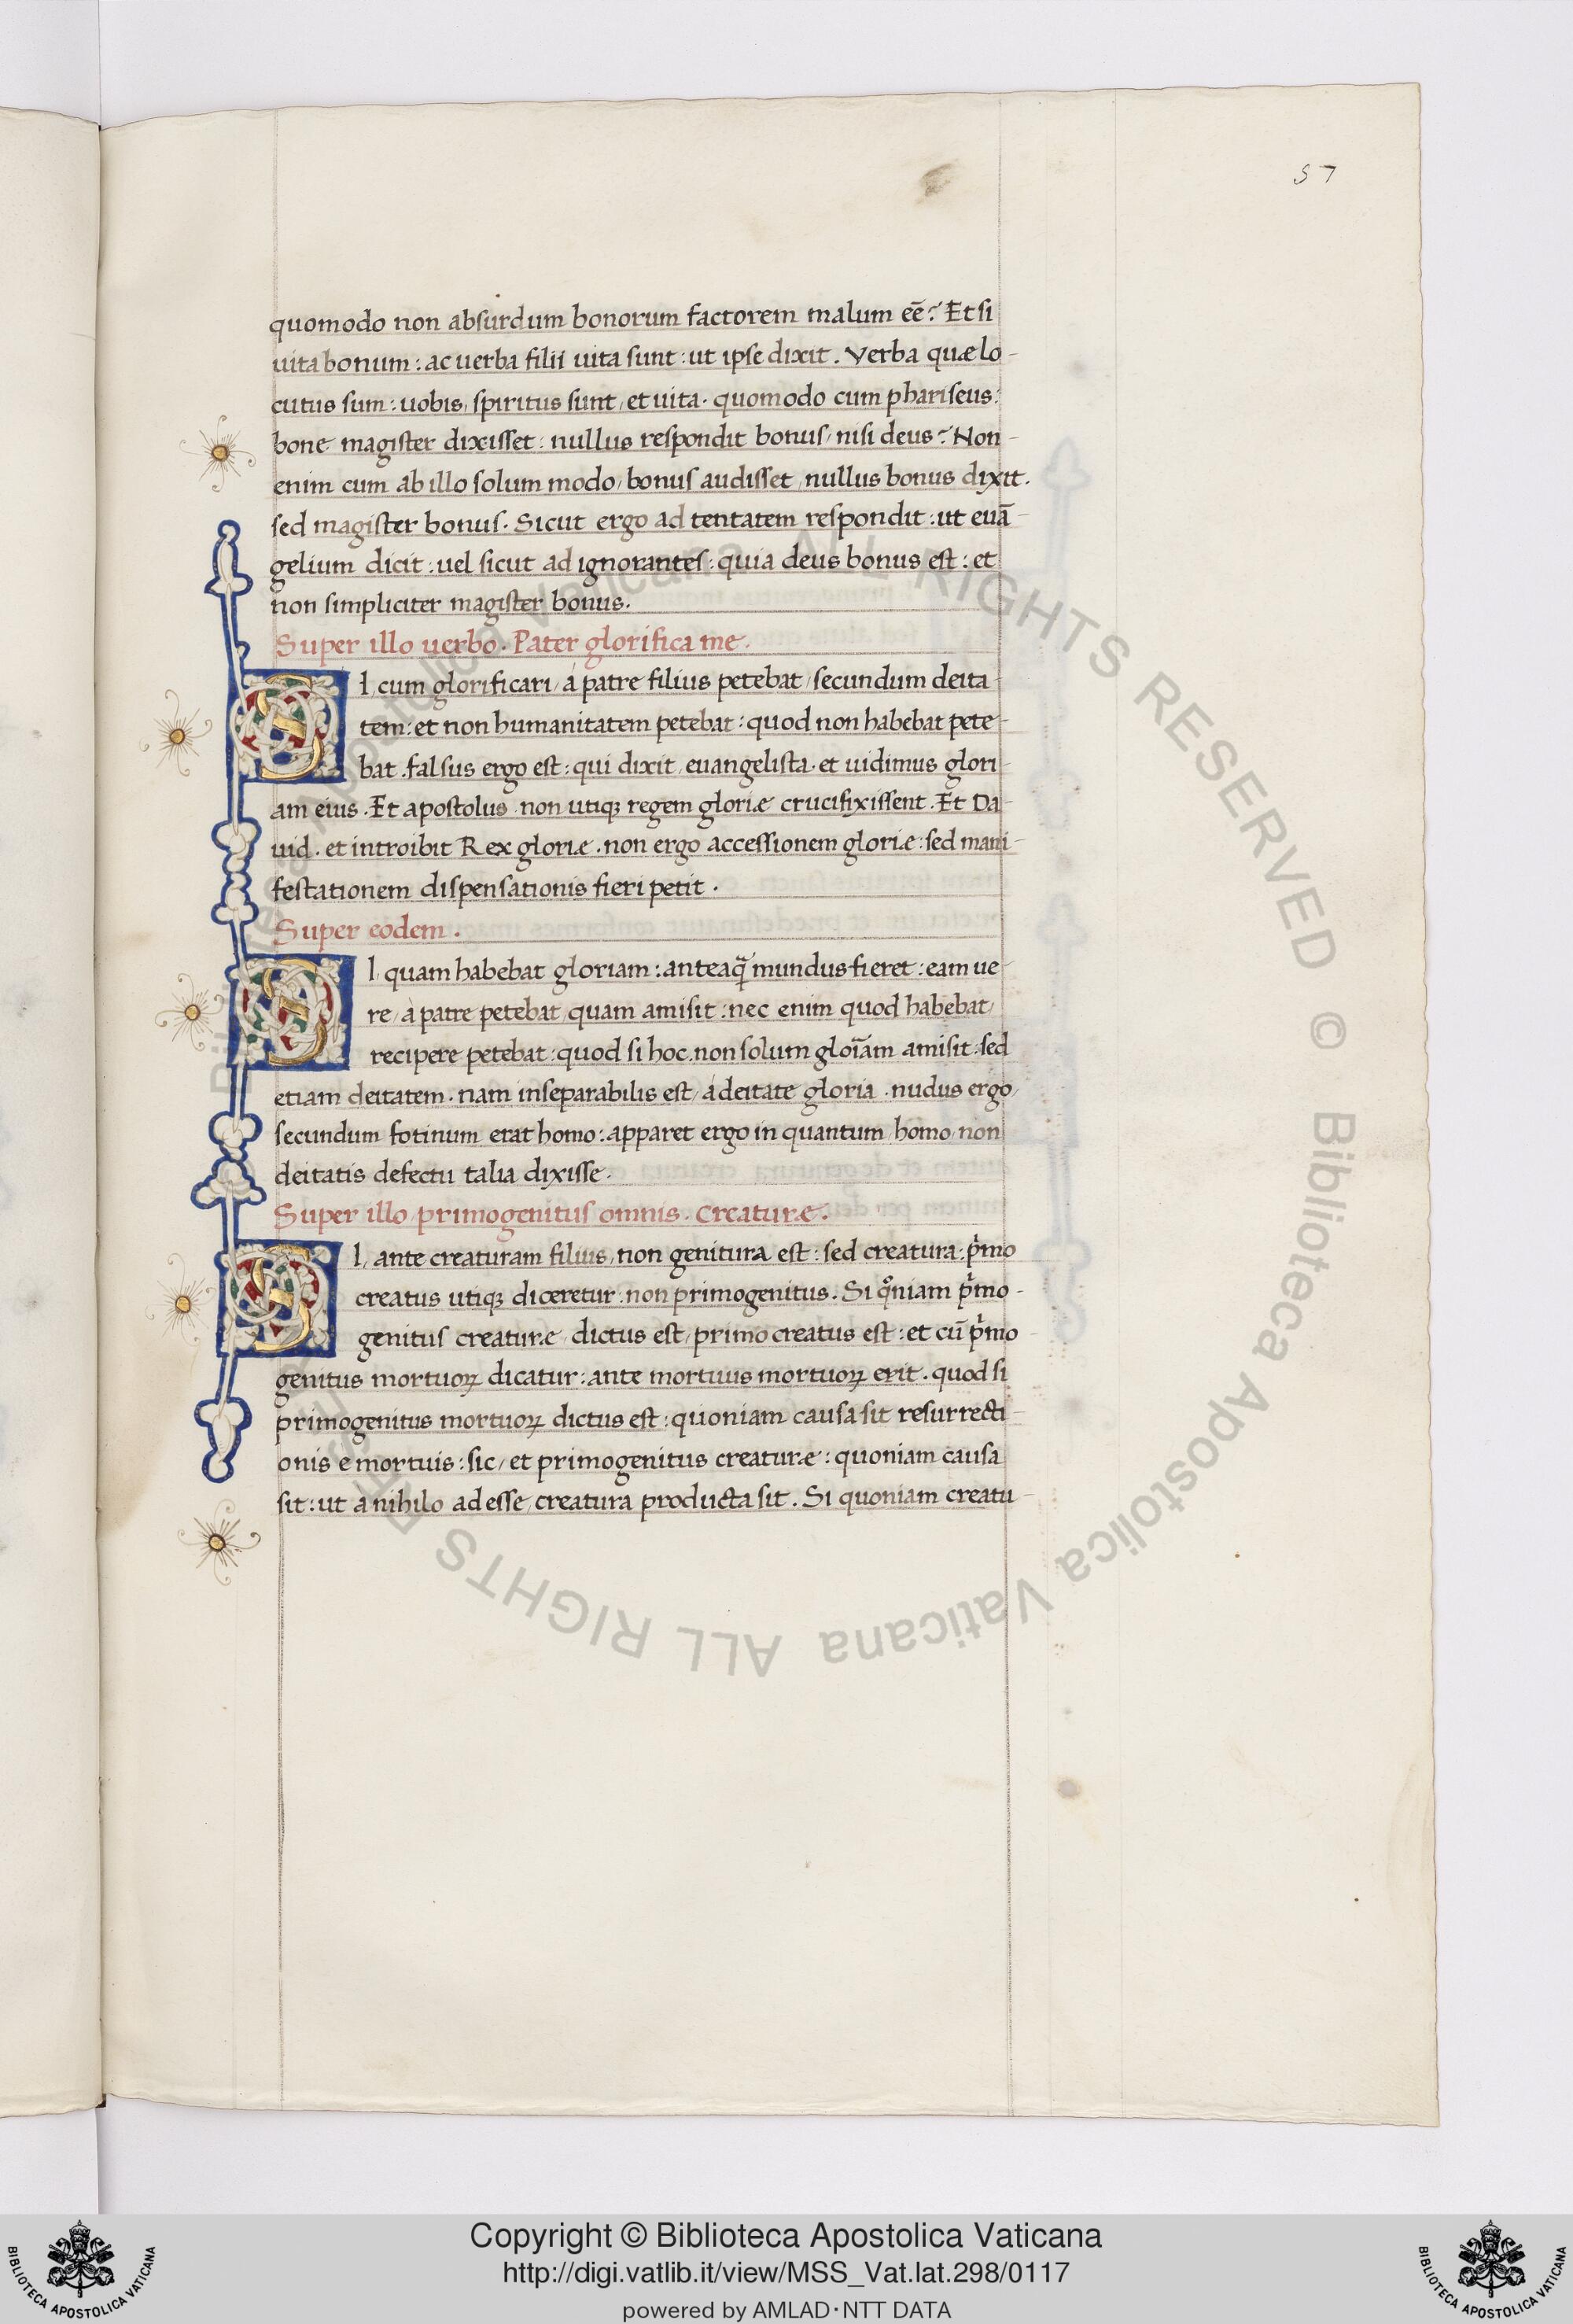 57
quomodo non absurdum bonorum factorem malum eē? Et si
uita bonum: ac uerba filii uita sunt: ut ipse dixit. Verba quæ lo-
cutus sum: uobis, spiritus sunt, et uita. quomodo cum phariseus:
bone magister dixisset: nullus respondit bonus, nisi deus? Non-
enim cum ab illo solum modo, bonus audisset, nullus bonus dixit.
sed magister bonus. Sicut ergo ad tentatem respondit: ut euā-
gelium dicit: uel sicut ad ignorantes: quia deus bonus est: et
non simpliciter magister bonus.
Super illo uerbo. Pater glorifica me.
SI, cum glorificari, á patre filius petebat, secundum deita-
tem: et non humanitatem petebat: quod non habebat pete-
bat. falsus ergo est: qui dixit, euangelista. et uidimus glori-
am eius. Et apostolus non utiqꝫ regem gloriæ crucifixissent. Et Da-
uid. et introibit Rex gloriæ. non ergo accessionem gloriæ: sed mani-
festationem dispensationis fieri petit.
Super eodem.
SI, quam habebat gloriam: anteaq̄ mundus fieret: eam ue-
re, à patre petebat, quam amisit: nec enim quod habebat,
recipere petebat: quod si hoc. non solum gloīam amisit: sed
etiam deitatem. nam inseparabilis est, á deitate gloria. nudus ergo,
secundum fotinum erat homo: apparet ergo in quantum, homo, non
deitatis defectu talia dixisse.
Super illo, primogenitus omnis. creaturæ.
SI, ante creaturam filius, non genitura est: sed creatura: pͥmo
creatus utiqꝫ diceretur. non primogenitus. Si qͦniam pͥmo-
genitus creaturæ, dictus est, primo creatus est: et cū pͥmo-
genitus mortuoꝝ dicatur: ante mortuus mortuoꝝ erit. quod si
primogenitus mortuoꝝ dictus est: quoniam causa sit resurrecti-
onis e mortuis: sic, et primogenitus creaturæ: quoniam causa
sit: ut a nihilo ad esse, creatura producta sit. Si quoniam creatu-
Biblioteca Apostolica Vaticana ALL RIGHTS RESERVED © Biblioteca Apostolica Vaticana ALL RIGHTS RESERVED ©
Copyright © Biblioteca Apostolica Vaticana
http://digi.vatlib.it/view/MSS_Vat.lat.298/0117
powered by AMLAD·NTT DATA
BIBLIOTECA APOSTOLICA VATICANA
BIBLIOTECA APOSTOLICA VATICANA